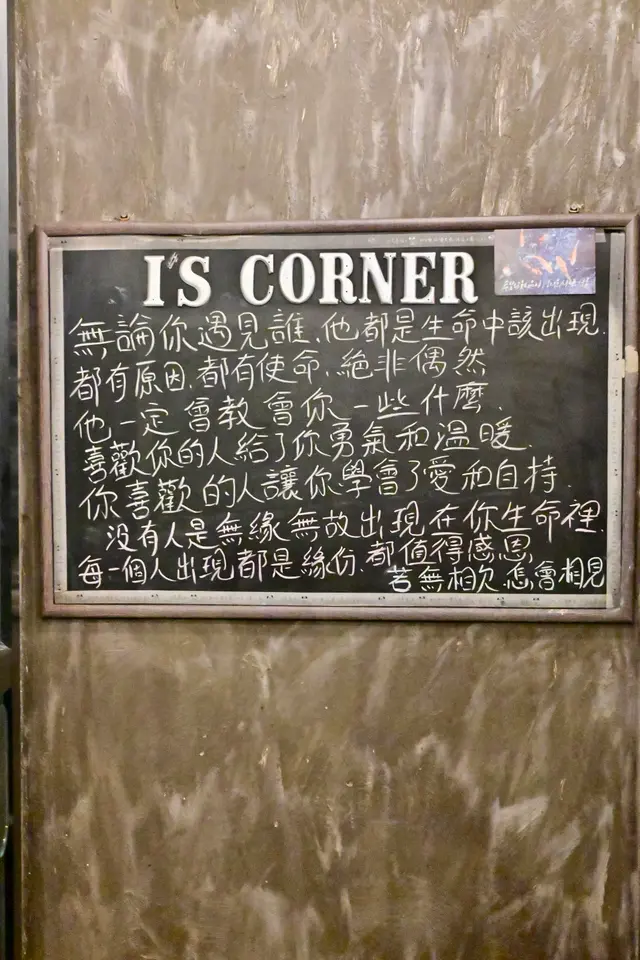 I'S CORNER
無論你遇見誰、他都是生命中該出現.
都有原因.都有使命.絕非偶然
他一定會教會你一些什麼.
喜歡你的人給了你勇氣和溫暖.
你喜歡的人讓你學會了愛和自持.
没有人是無緣無故出現在你生命裡.
每一個人出現都是緣份.都值得感恩
若無相欠怎會相見